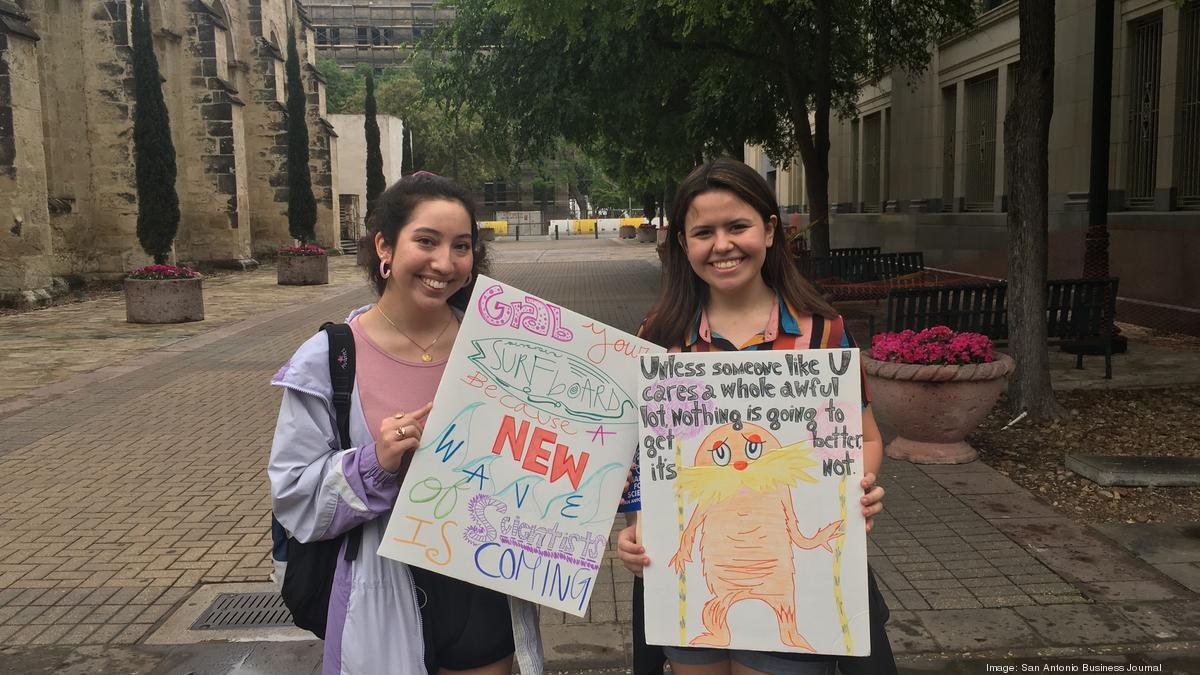 Grab your
SURFBOARD
Because A
NEW
WAVE
OF Scientists
IS COMING
UNLESS SOMEONE LIKE U
CARES A WHOLE AWFUL
LOT, NOTHING IS GOING TO
get better,
it's NOT.
FOR
Image: San Antonio Business Journal